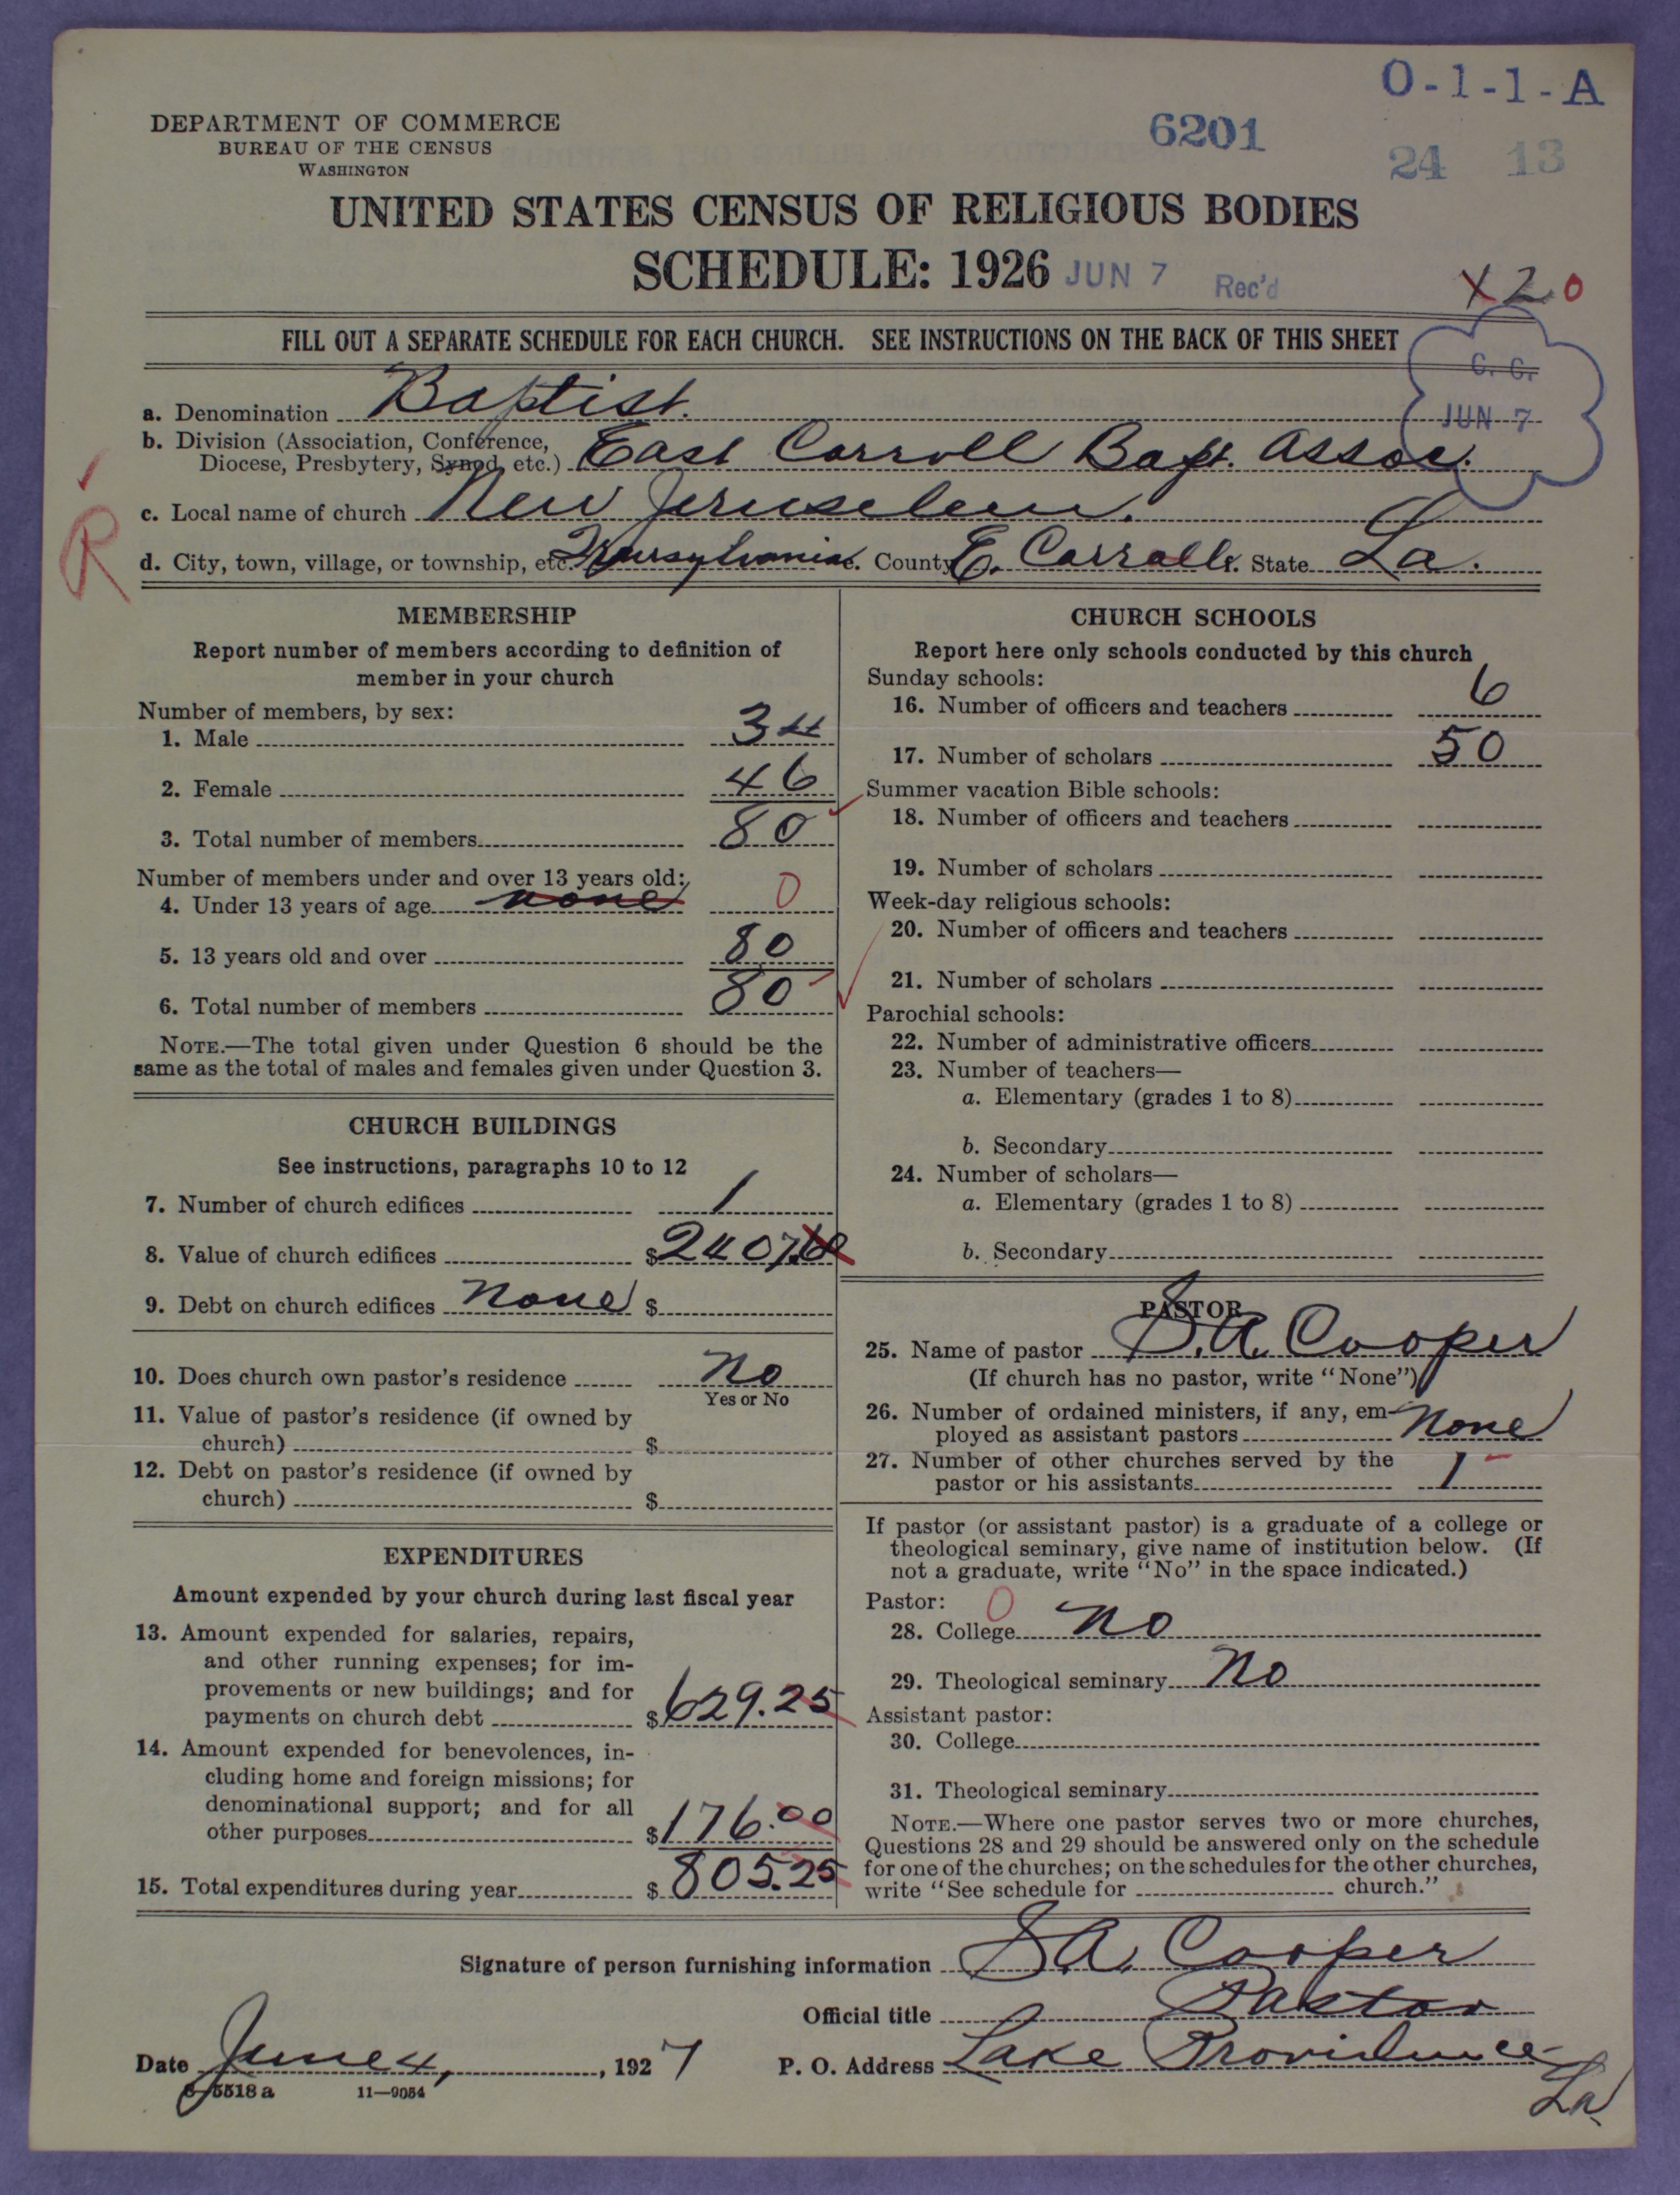 O-1-1-A
DEPARTMENT OF COMMERCE
BUREAU OF THE CENSUS
WASHINGTON
6201
24 13
UNITED STATES CENSUS OF RELIGIOUS BODIES
SCHEDULE: 1926 JUN 7 Rec'd
X 2 0
FILL OUT A SEPARATE SCHEDULE FOR EACH CHURCH. SEE INSTRUCTIONS ON THE BACK OF THIS SHEET
C. C.
JUN 7
a. Denomination Baptist.
b. Division (Association, Conference,
Diocese, Presbytery, Synod, etc.) East Carroll Bapt. Assoc.
c. Local name of church New Jeruselem.
R
d. City, town, village, or township, etc. County E. Carroll. State La.
MEMBERSHIP
Report number of members according to definition of
member in your church
Number of members, by sex:
1. Male 34
2. Female 46
3. Total number of members 80
Number of members under and over 13 years old:
4. Under 13 years of age none 0
5. 13 years old and over 80
6. Total number of members 80
NOTE.—The total given under Question 6 should be the
same as the total of males and females given under Question 3.
CHURCH BUILDINGS
See instructions, paragraphs 10 to 12
7. Number of church edifices 1
8. Value of church edifices $2407.60
9. Debt on church edifices None $
10. Does church own pastor's residence No
Yes or No
11. Value of pastor's residence (if owned by
church) $
12. Debt on pastor's residence (if owned by
church) $
EXPENDITURES
Amount expended by your church during last fiscal year
13. Amount expended for salaries, repairs,
and other running expenses; for im-
provements or new buildings; and for
payments on church debt $629.25
14. Amount expended for benevolences, in-
cluding home and foreign missions; for
denominational support; and for all
other purposes $176.00
15. Total expenditures during year $805.25
CHURCH SCHOOLS
Report here only schools conducted by this church
Sunday schools:
16. Number of officers and teachers 6
17. Number of scholars 50
Summer vacation Bible schools:
18. Number of officers and teachers
19. Number of scholars
Week-day religious schools:
20. Number of officers and teachers
21. Number of scholars
Parochial schools:
22. Number of administrative officers
23. Number of teachers—
a. Elementary (grades 1 to 8)
b. Secondary
24. Number of scholars—
a. Elementary (grades 1 to 8)
b. Secondary
PASTOR
25. Name of pastor S. A. Cooper
(If church has no pastor, write "None")
26. Number of ordained ministers, if any, em-
ployed as assistant pastors None
27. Number of other churches served by the
pastor or his assistants 1
If pastor (or assistant pastor) is a graduate of a college or
theological seminary, give name of institution below. (If
not a graduate, write "No" in the space indicated.)
Pastor: 0
28. College No
29. Theological seminary No
Assistant pastor:
30. College
31. Theological seminary
NOTE.—Where one pastor serves two or more churches,
Questions 28 and 29 should be answered only on the schedule
for one of the churches; on the schedules for the other churches,
write "See schedule for church."
Signature of person furnishing information S. A. Cooper
Official title Pastor
Date June 4, 1927 P. O. Address Lake Providence
La.
8-5518 a 11—9054